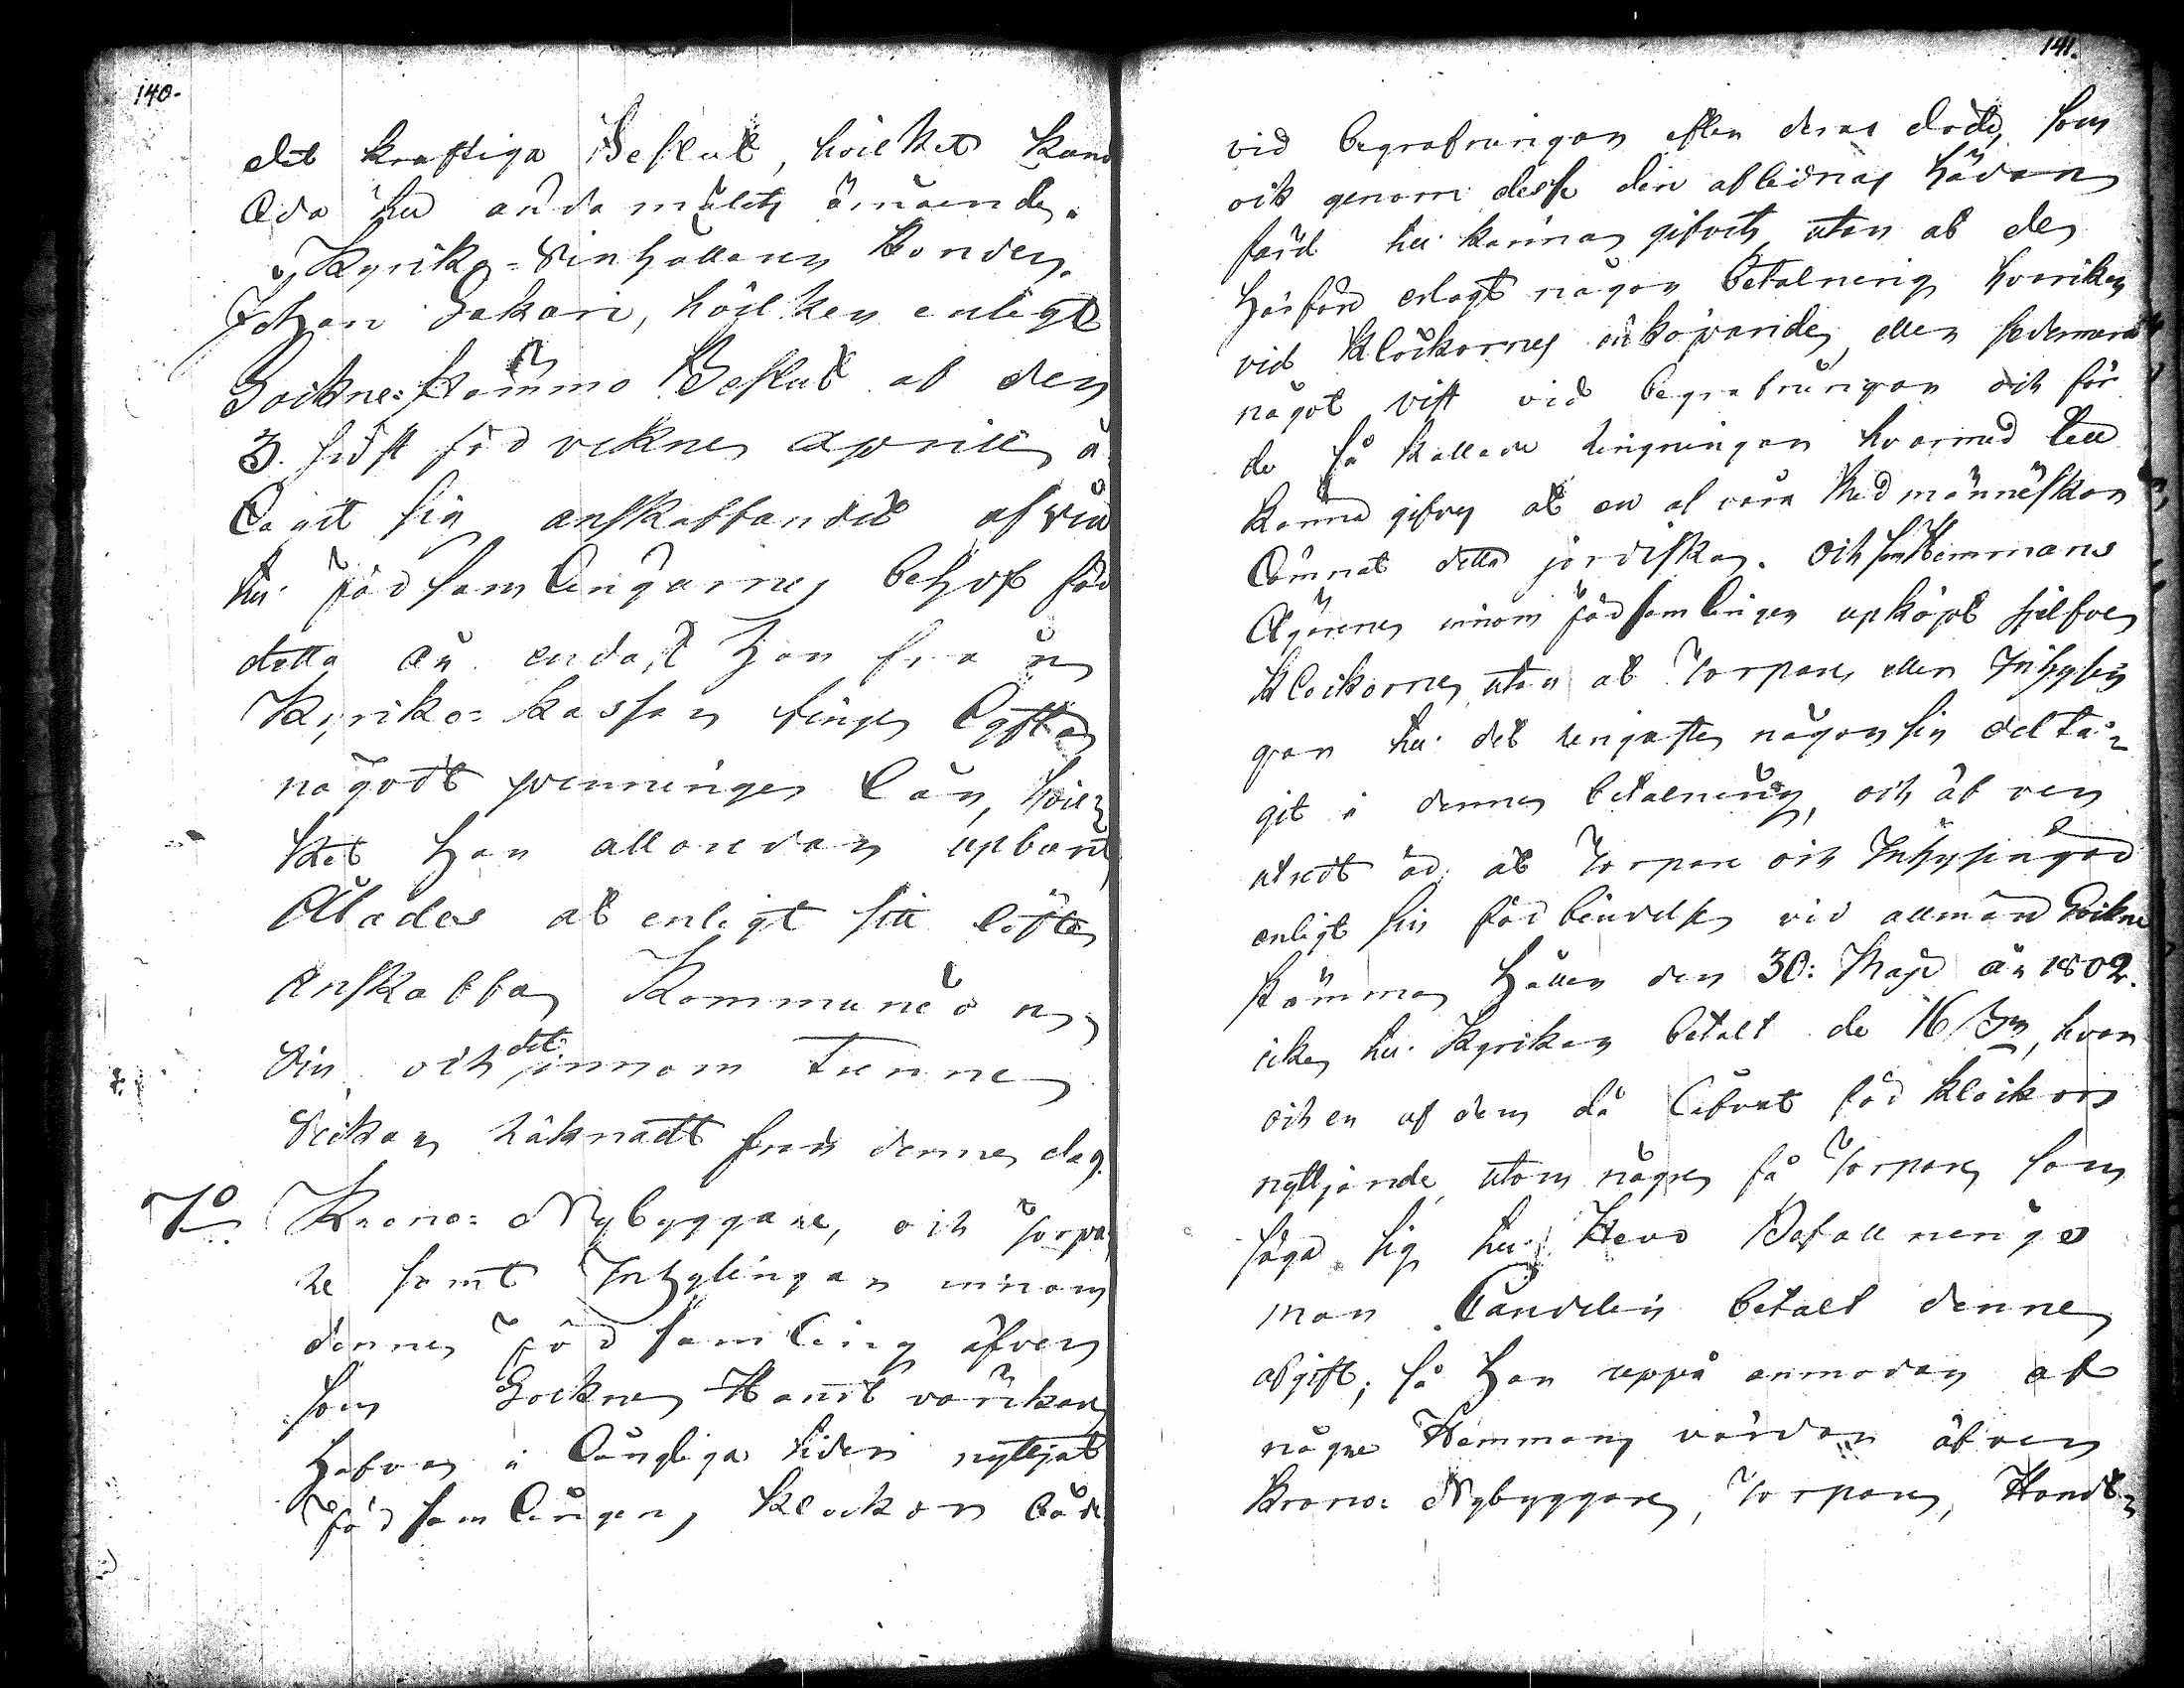 140.
det kraftiga Beslut, hvilket kan
leda till ändamålets ärnående.
Kyrko-Vinhållaren Bonden
Johan Jakari, hvilken enligt
Sockne-Stämmo Beslut af den
3. sidst förvekne Aprill å-
tagit sig anskaffandet af vin
till församlingarnes behof för
detta år endast han från
Kyrko-Kassan finge lyfta
något penninge lån, hvil-
ket han allaredan upburit,
Ålades at enligt sitt löfte
anskaffa Kommunion
Vin och det innom Trenne
Veckor räknadt från denne dag.
7o Krono-Nybyggare, och Torpa-
re samt Inhysingar innom
denne församling äfven
som Sockne Handtvärkare
hafva i långliga tider nyttjat
församlingens klockor både
141.
vid begrafningar efter deras döde, som
ock genom desse den aflednas hädan
färd till känna gifvits utan at de
härför erlagt någon betalning hvarken
vid Klockornes inköpande, eller sedermera
något visst vid begrafningar och för
de så kallade ringningar hvarmed till
känna gifves at en af våra Medmänniskor
lämnat detta jordiska. Och som Hemmans
Ägarene innom församlingen upköpt sjelfve
Klockorne, utan at Torpare eller Inhysin-
gar till det ringaste någonsin delta-
git i denne betalning, och äfven
utredt är at Torpare och Inhysingar
enligt sin förbindelse vid allmän Sockne
stämma hållen den 30: Maji år 1802.
icke till Kyrkan betalt de 16 ss, hvar
och en af dem då lofvat för klockors
nyttjande, utom någre få Torpare som
säga sig till Herr Befallnings
man Landelin betalt denne
afgift, så har uppå anmodan af
någre Hemmans värdar äfven
Krono-Nybyggare, Torpare, Handt-